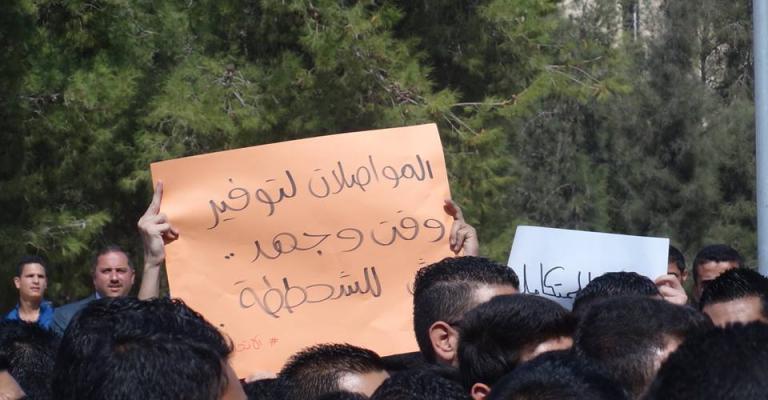 المواصلات لتوفير
وقت وجهد ..
للشحططة
المتكاملة